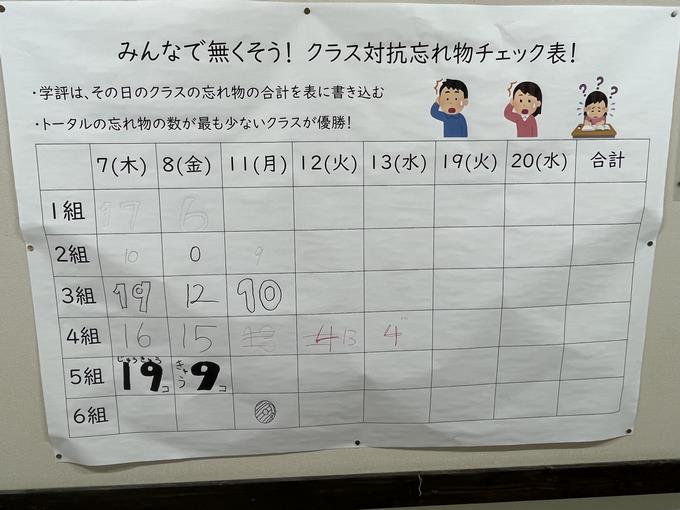 みんなで無くそう! クラス対抗忘れ物チェック表!
・学評は、その日のクラスの忘れ物の合計を表に書き込む
・トータルの忘れ物の数が最も少ないクラスが優勝!
???
7(木) 8(金) 11(月) 12(火) 13(水) 19(火) 20(水) 合計
1組 17 6
2組 10 0 9
3組 19 12 10
4組 16 15 4 13 4
じゅうきゅう きゅう
5組 19コ 9コ
6組